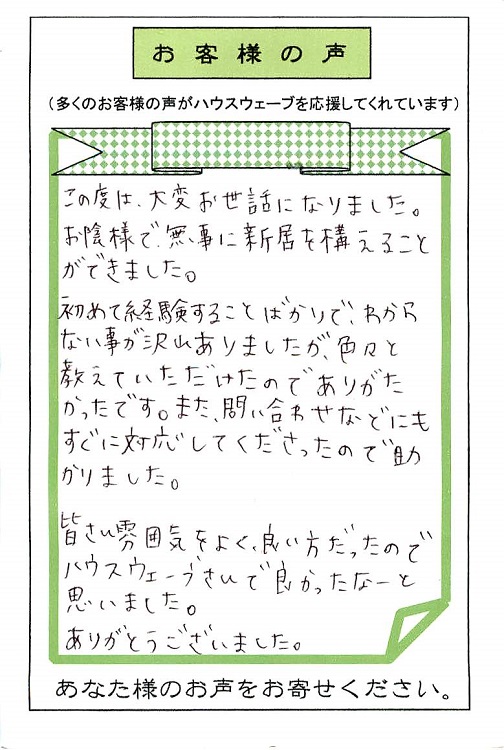 お客様の声
(多くのお客様の声がハウスウェーブを応援してくれています)
この度は、大変お世話になりました。
お陰様で、無事に新居を構えること
ができました。
初めて経験することばかりで、わから
ない事が沢山ありましたが、色々と
教えていただけたのでありがた
かったです。また、問い合わせなどにも
すぐに対応してくださったので助
かりました。
皆さん雰囲気もよく、良い方だったので
ハウスウェーブさんで良かったなーと
思いました。
ありがとうございました。
あなた様のお声をお寄せください。